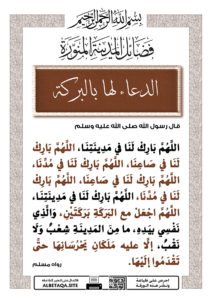 بسم الله الرحمن الرحيم
فضائل المدينة المنورة
الدعاء لها بالبركة
قال رسول الله صلى الله عليه وسلم
اللَّهُمَّ بَارِكْ لَنَا فِي مَدِينَتِنَا، اللَّهُمَّ بَارِكْ
لَنَا فِي صَاعِنَا، اللَّهُمَّ بَارِكْ لَنَا فِي مُدِّنَا،
اللَّهُمَّ بَارِكْ لَنَا فِي صَاعِنَا، اللَّهُمَّ بَارِكْ
لَنَا فِي مُدِّنَا، اللَّهُمَّ بَارِكْ لَنَا فِي مَدِينَتِنَا،
اللَّهُمَّ اجْعَلْ مع البَرَكَةِ بَرَكَتَيْنِ، وَالَّذِي
نَفْسِي بِيَدِهِ، ما مِنَ المَدِينَةِ شِعْبٌ وَلَا
نَقْبٌ، إلَّا عليه مَلَكَانِ يَحْرُسَانِهَا حتَّى
تَقْدَمُوا إِلَيْهَا.
رواه مسلم
ALBETAQA.SITE
احرص على طباعة
ونشر هذه البطاقة